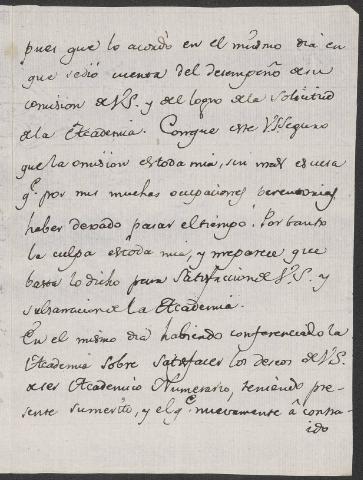 pues que lo acordó en el mismo dia en
que se dió cuenta del desempeño de su
comision de V.S. y del logro de la solicitud
de la Academia. Conque este V.S. seguro
que la omision es toda mia, sin mas escusa
q.e por mis muchas ocupaciones
haber dexado pasar el tiempo. Por tanto
la culpa es toda mia, y me parece que
basta lo dicho para satisfaccion de V.S. y
de la Academia.
En el mismo dia habiendo conferenciado la
Academia sobre satisfacer los deseos de V.S.
de ser Academico Numerario, teniendo pre-
sente su merito, y el q.e nuevamente â contra-
ido